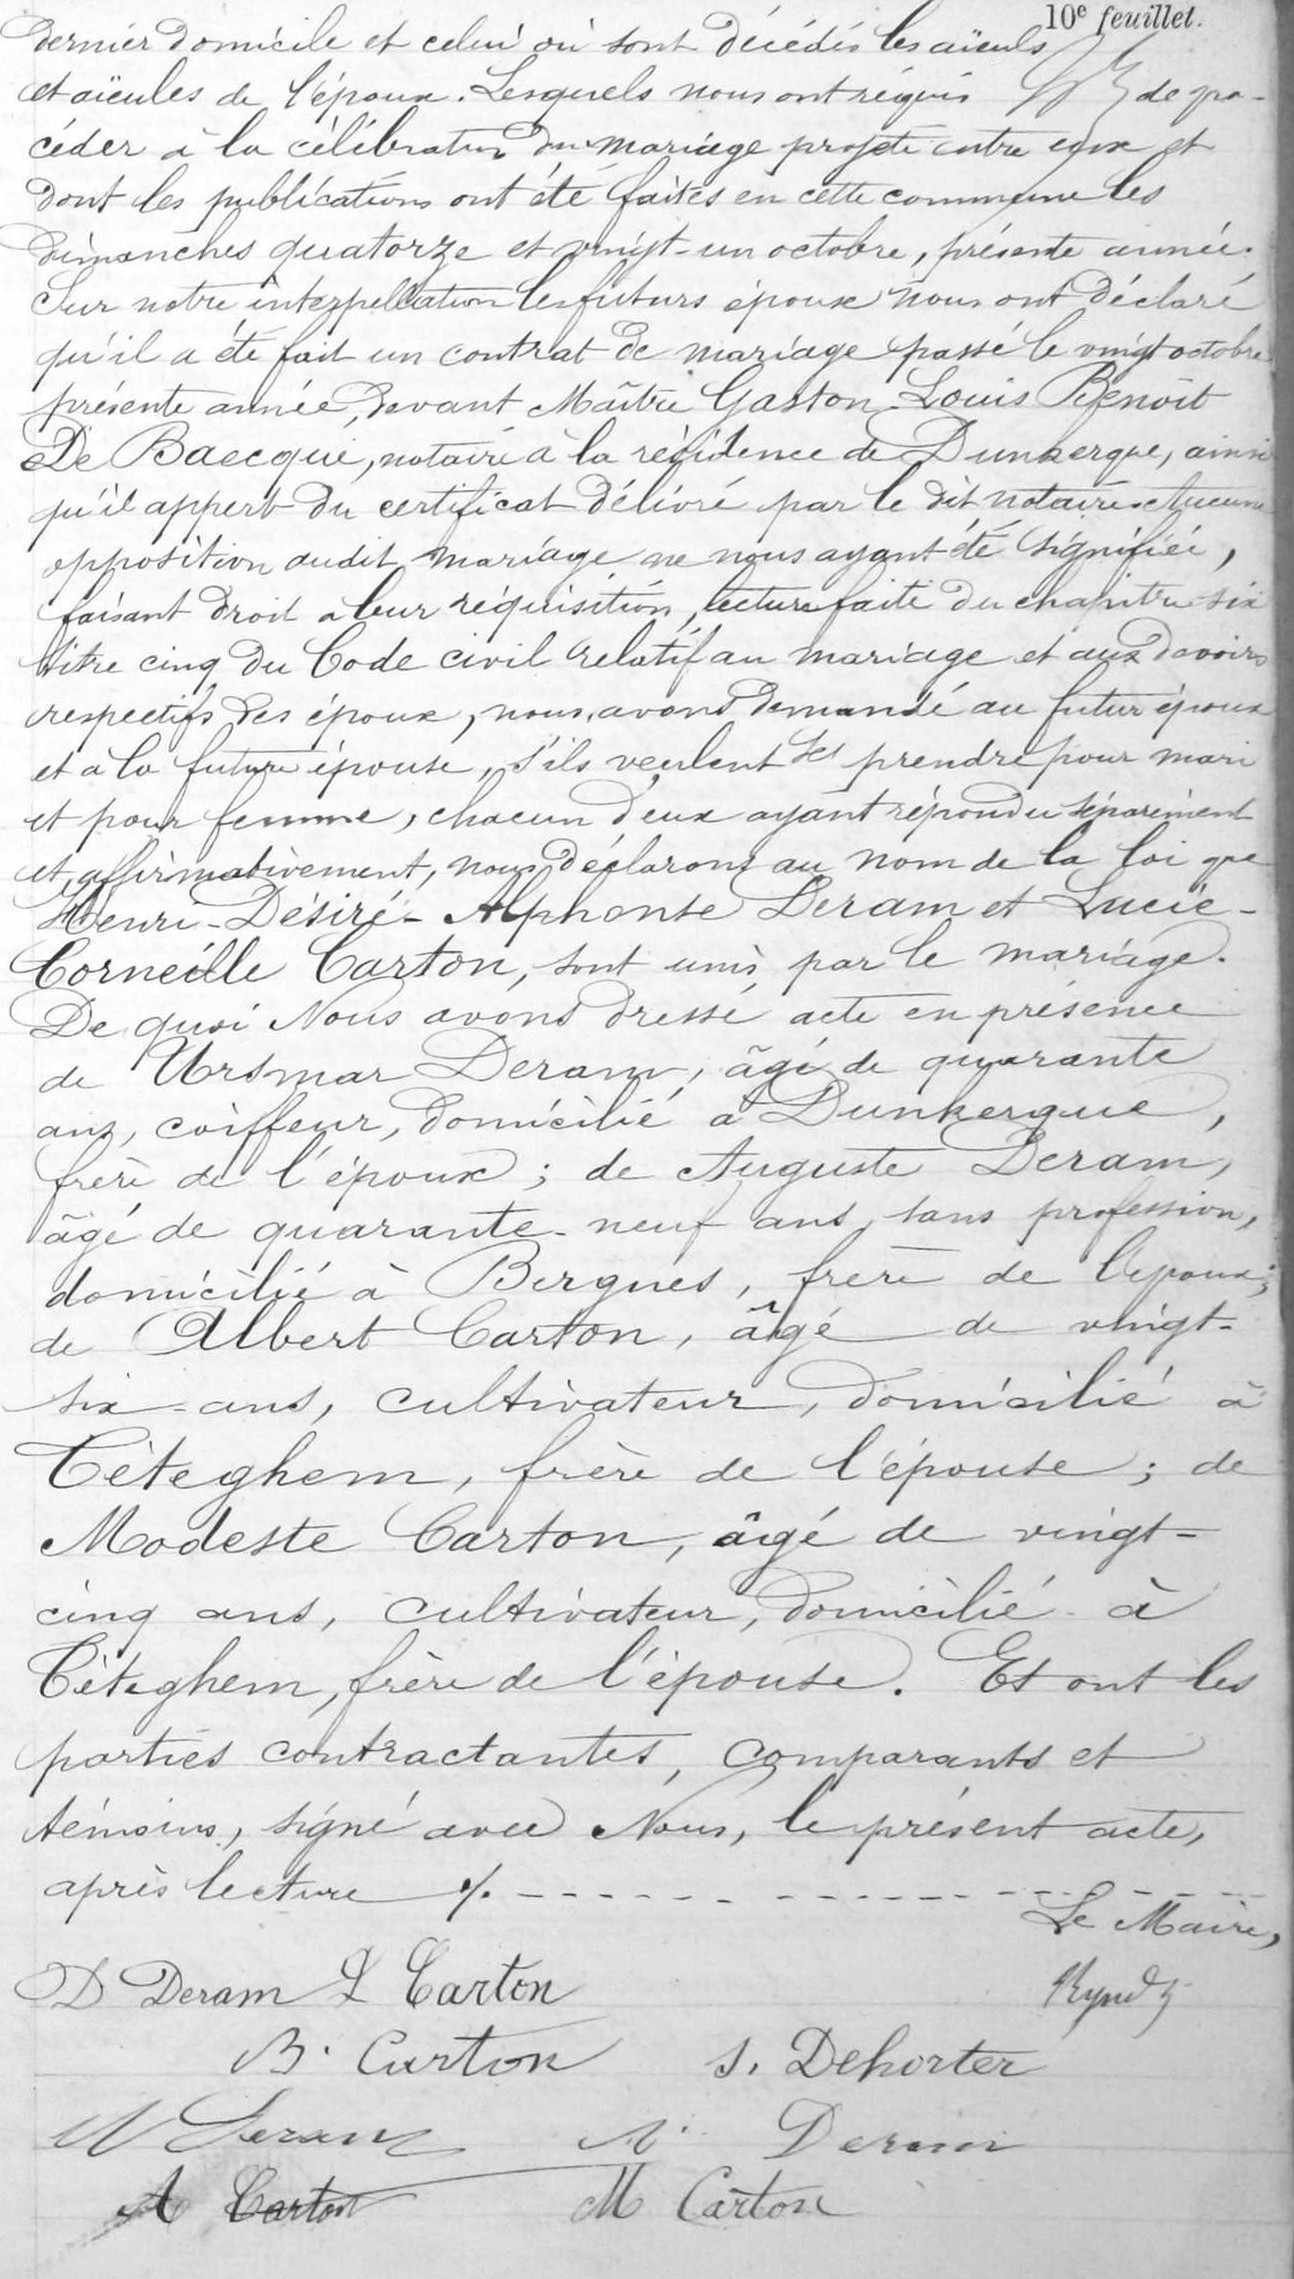 10e feuillet.
dernier domicile et celui où sont décédés les aïeuls
et aïeules de l'époux. Lesquels nous ont requis de pro-
céder à la célébration du mariage projeté entre eux et
dont les publications ont été faites en cette commune les
dimanches quatorze et vingt-un octobre, présente année.
Sur notre interpellation les futurs époux nous ont déclaré
qu'il a été fait un contrat de mariage passé le vingt octobre
présente année, devant Maître Gaston Louis Benoit
De Baecque, notaire à la résidence de Dunkerque, ainsi
qu'il appert du certificat délivré par le dit notaire. Aucune
opposition audit mariage ne nous ayant été signifiée,
faisant droit à leur réquisition, lecture faite du chapitre six
titre cinq du Code civil relatif au mariage et aux devoirs
respectifs des époux, nous avons demandé au futur époux
et à la future épouse, s'ils veulent se prendre pour mari
et pour femme, chacun d'eux ayant répondu séparément
et affirmativement, nous déclarons au nom de la loi que
Henri-Désiré-Alphonse Deram et Lucie-
Corneille Carton, sont unis par le mariage.
De quoi Nous avons dressé acte en présence
de Ursmar Deram, âgé de quarante
ans, coiffeur, domicilié à Dunkerque,
frère de l'époux; de Auguste Deram,
âgé de quarante-neuf ans, sans profession,
domicilié à Bergues, frère de l'époux;
de Albert Carton, âgé de vingt-
six-ans, cultivateur, domicilié à
Téteghem, frère de l'épouse; de
Modeste Carton, âgé de vingt-
cinq ans, cultivateur, domicilié à
Téteghem, frère de l'épouse. Et ont les
parties contractantes, comparants et
témoins, signé avec Nous, le présent acte,
après lecture ./.
Le Maire,
D Deram L Carton
B. Carton S. Dehorter
Deram A. Deram
A Carton M Carton